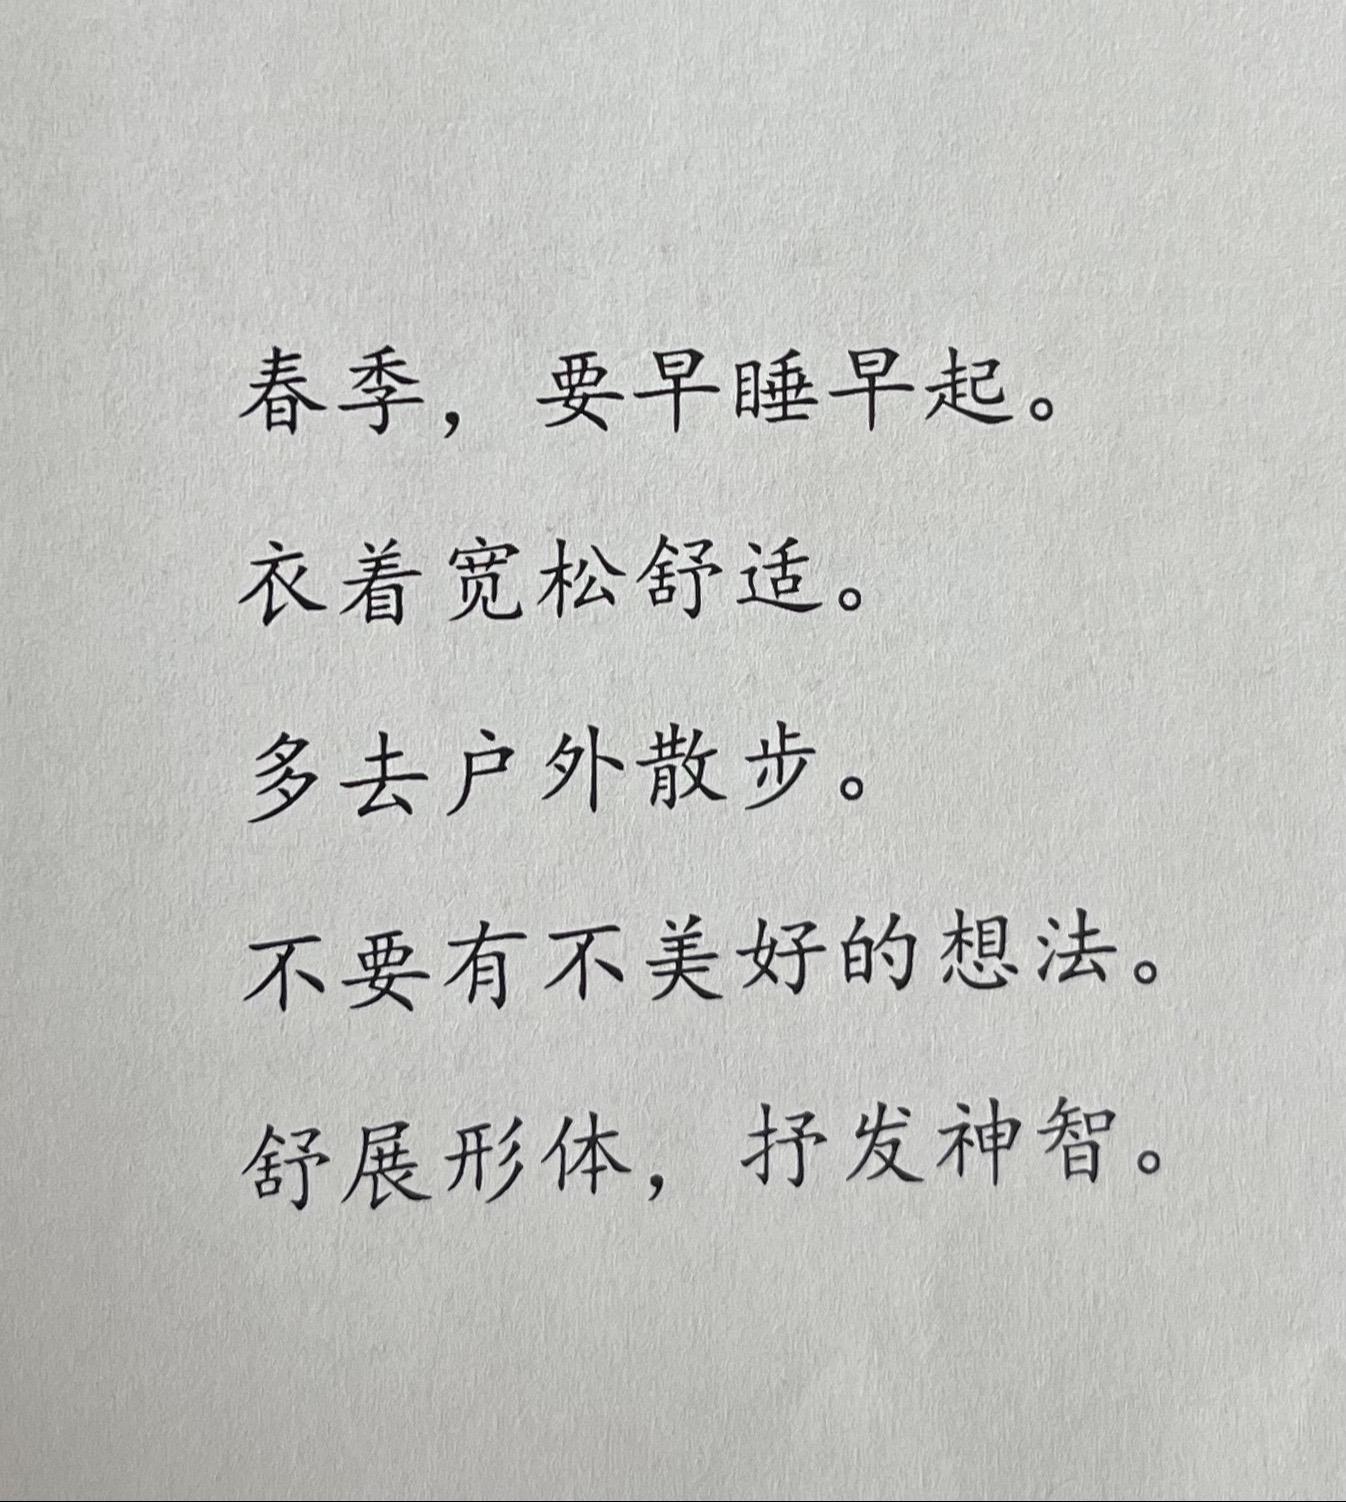 春季，要早睡早起。
衣着宽松舒适。
多去户外散步。
不要有不美好的想法。
舒展形体，抒发神智。